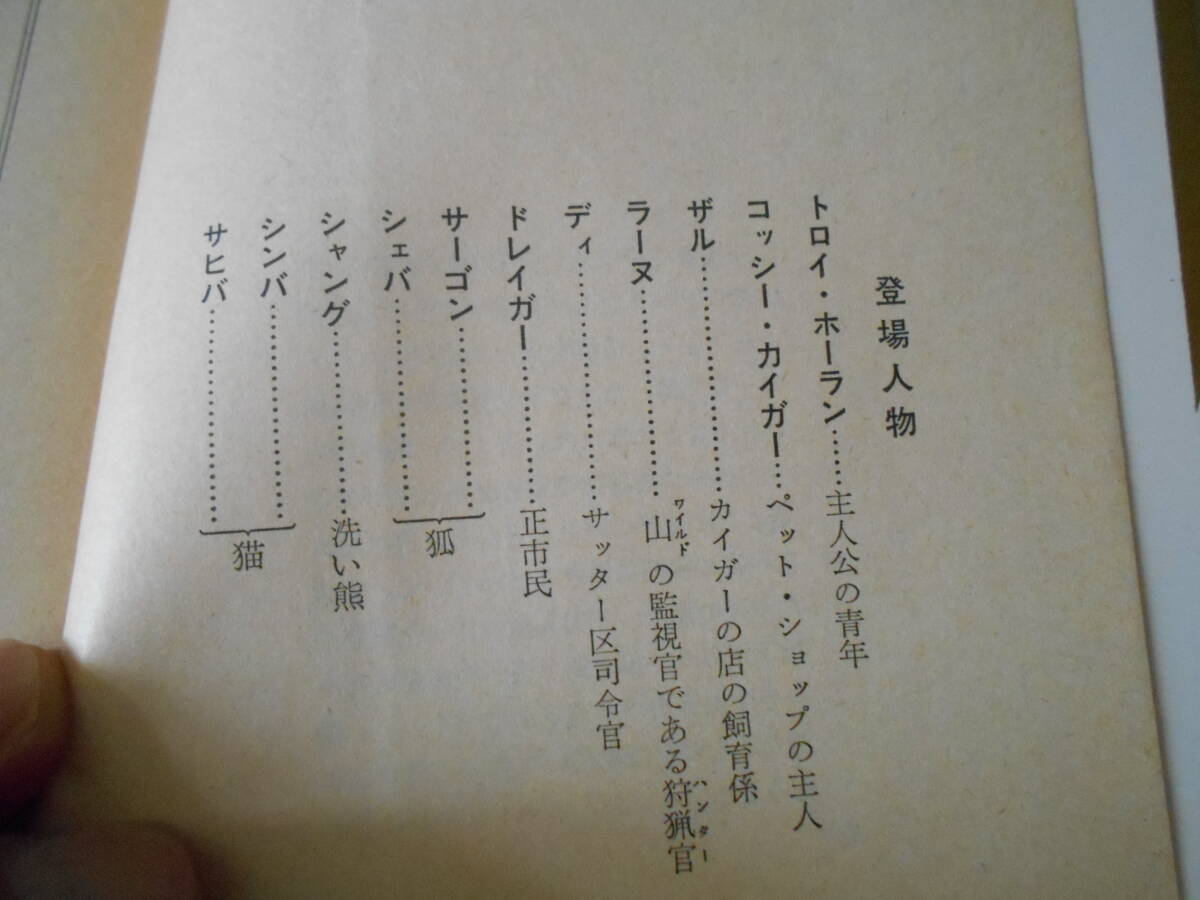 登場人物
トロイ・ホーラン……主人公の青年
コッシー・カイガー…ペット・ショップの主人
ザル……………………カイガーの店の飼育係
ラーヌ…………………山の監視官である狩猟官
ワイルド
ハンター
ディ……………………サッター区司令官
ドレイガー……………正市民
サーゴン………………
シェバ…………………
狐
シャング………………洗い熊
シンバ…………………
サヒバ…………………
猫